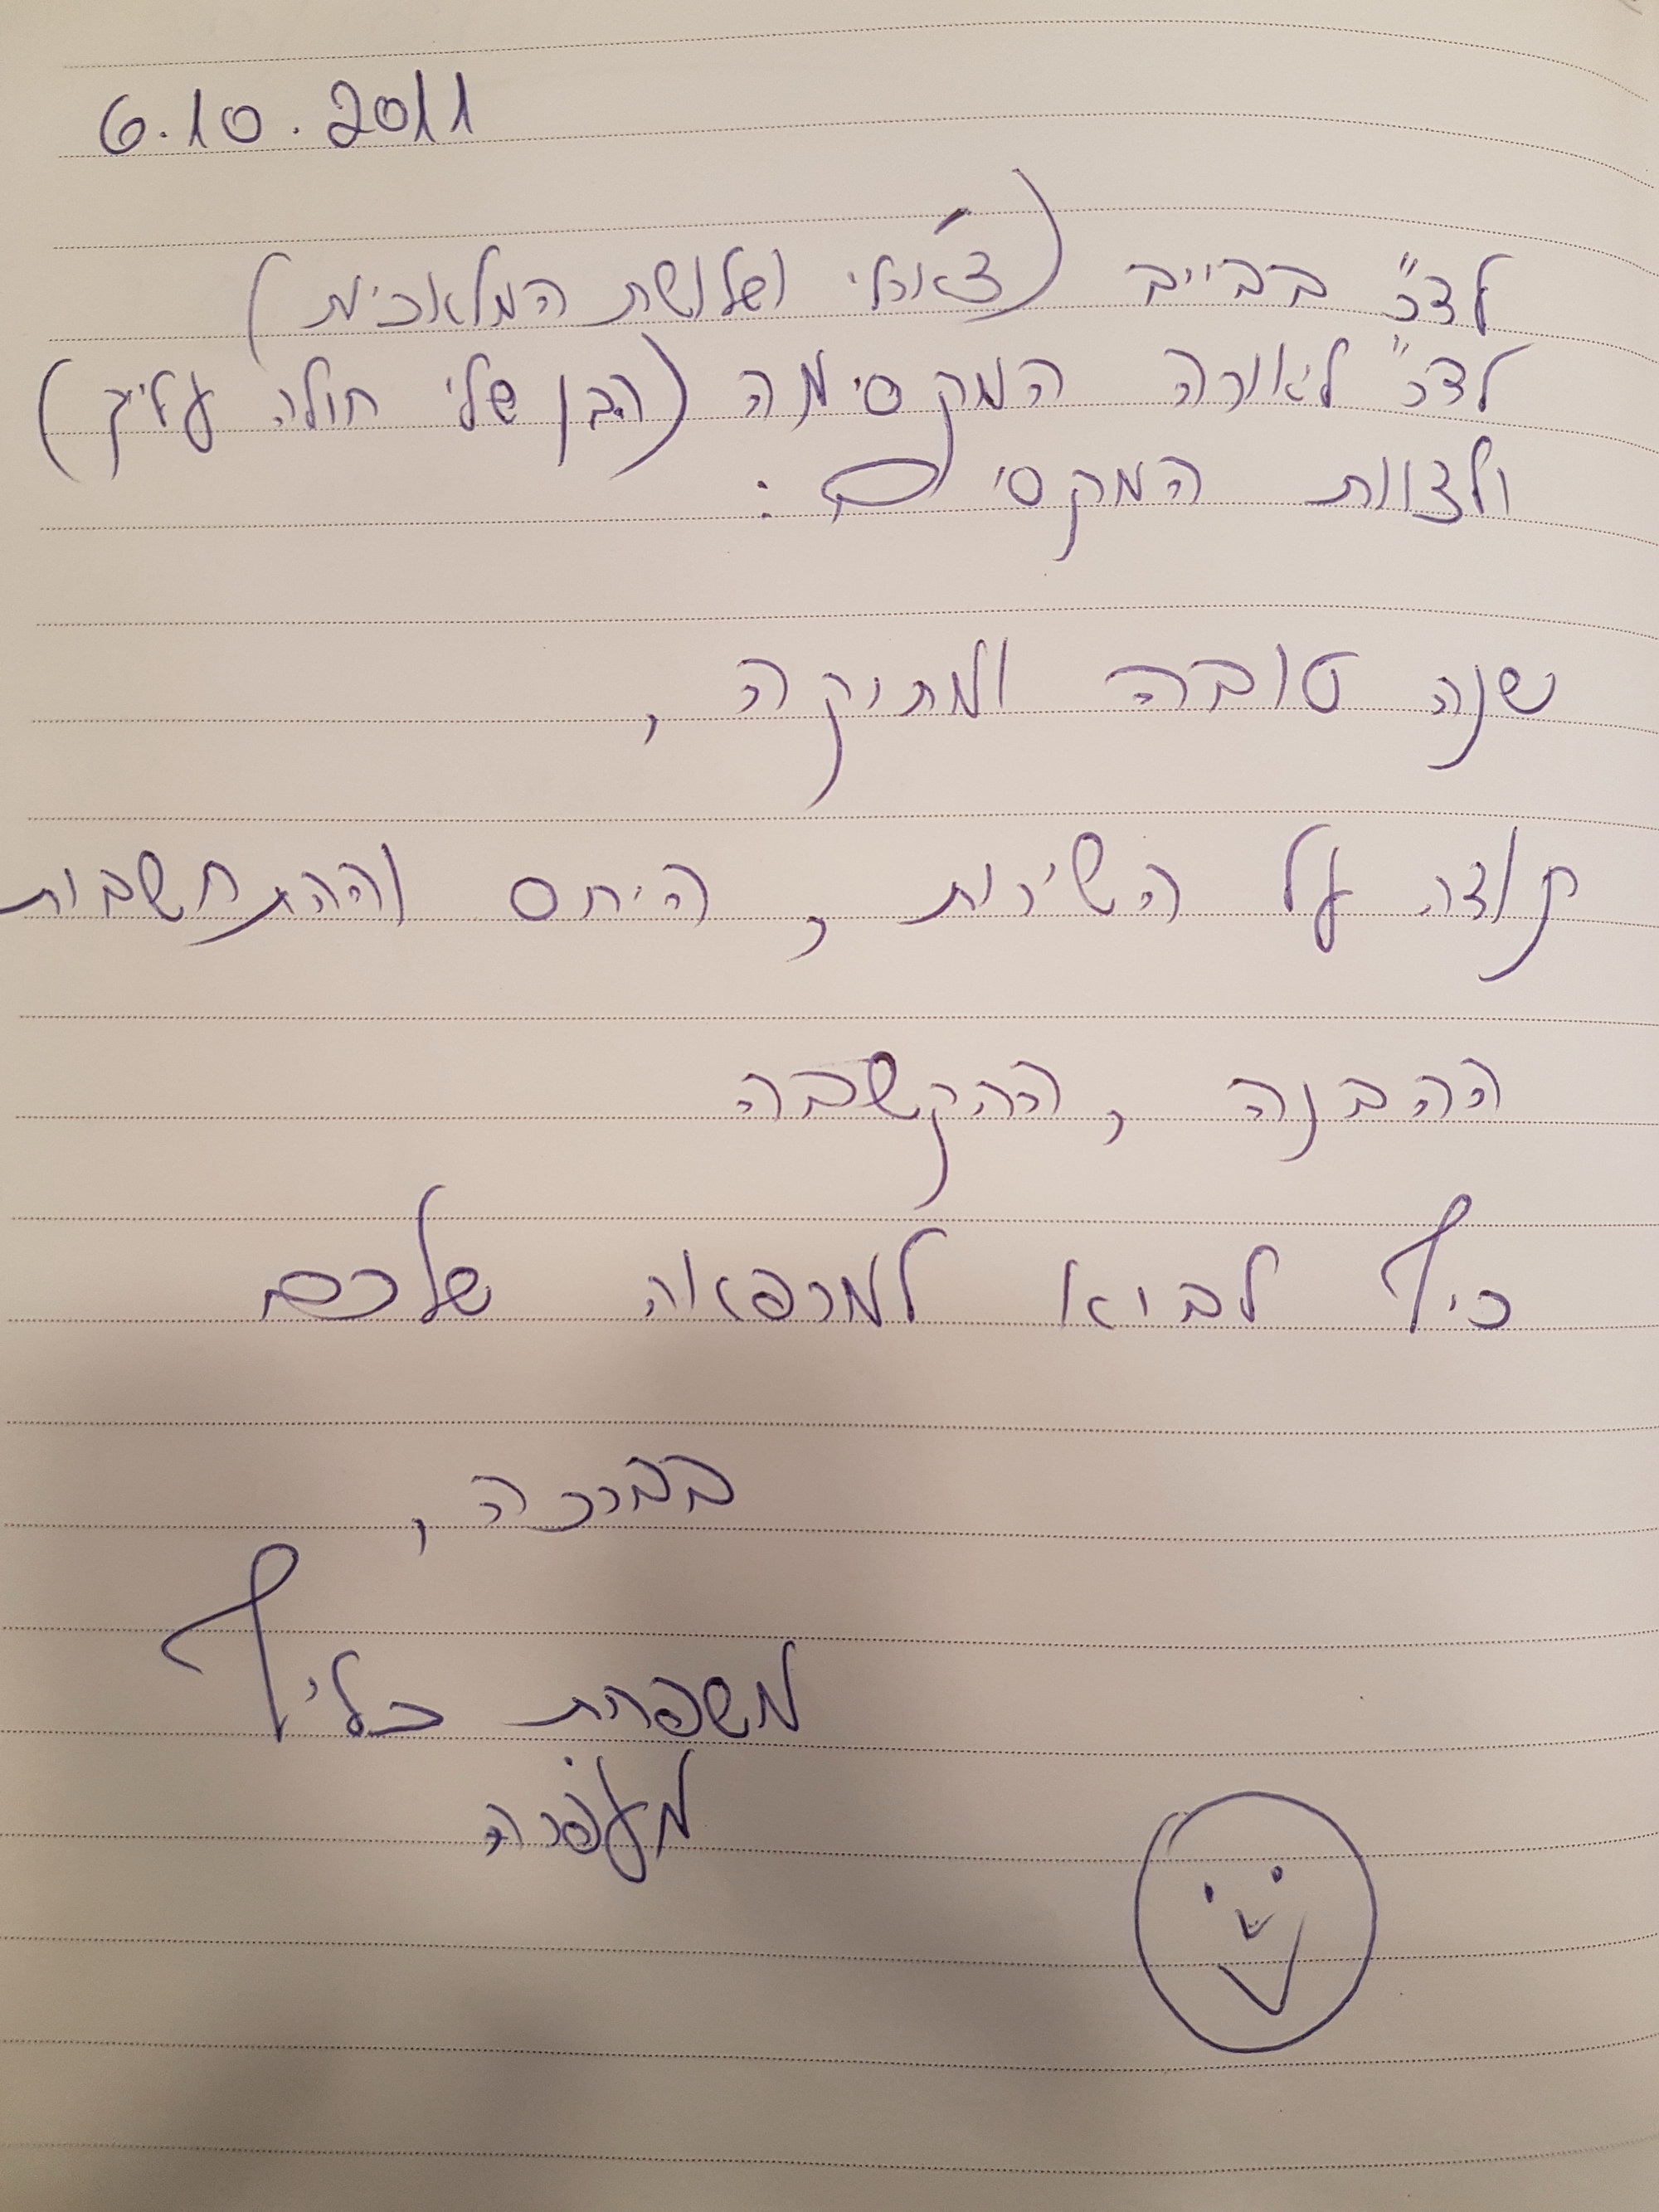 6.10.2011
לדר" בבייב (צ'ארלי ושלושת המלאכיות)
לדר" ליאורה המקסימה (הבן שלי חולה עלייך)
ולצוות המקסים:
שנה טובה ומתוקה,
תודה על השירות, היחס וההתחשבות
ההבנה, ההקשבה
כיף לבוא למרפאה שלכם
בברכה,
משפחת כליף
מעפרה